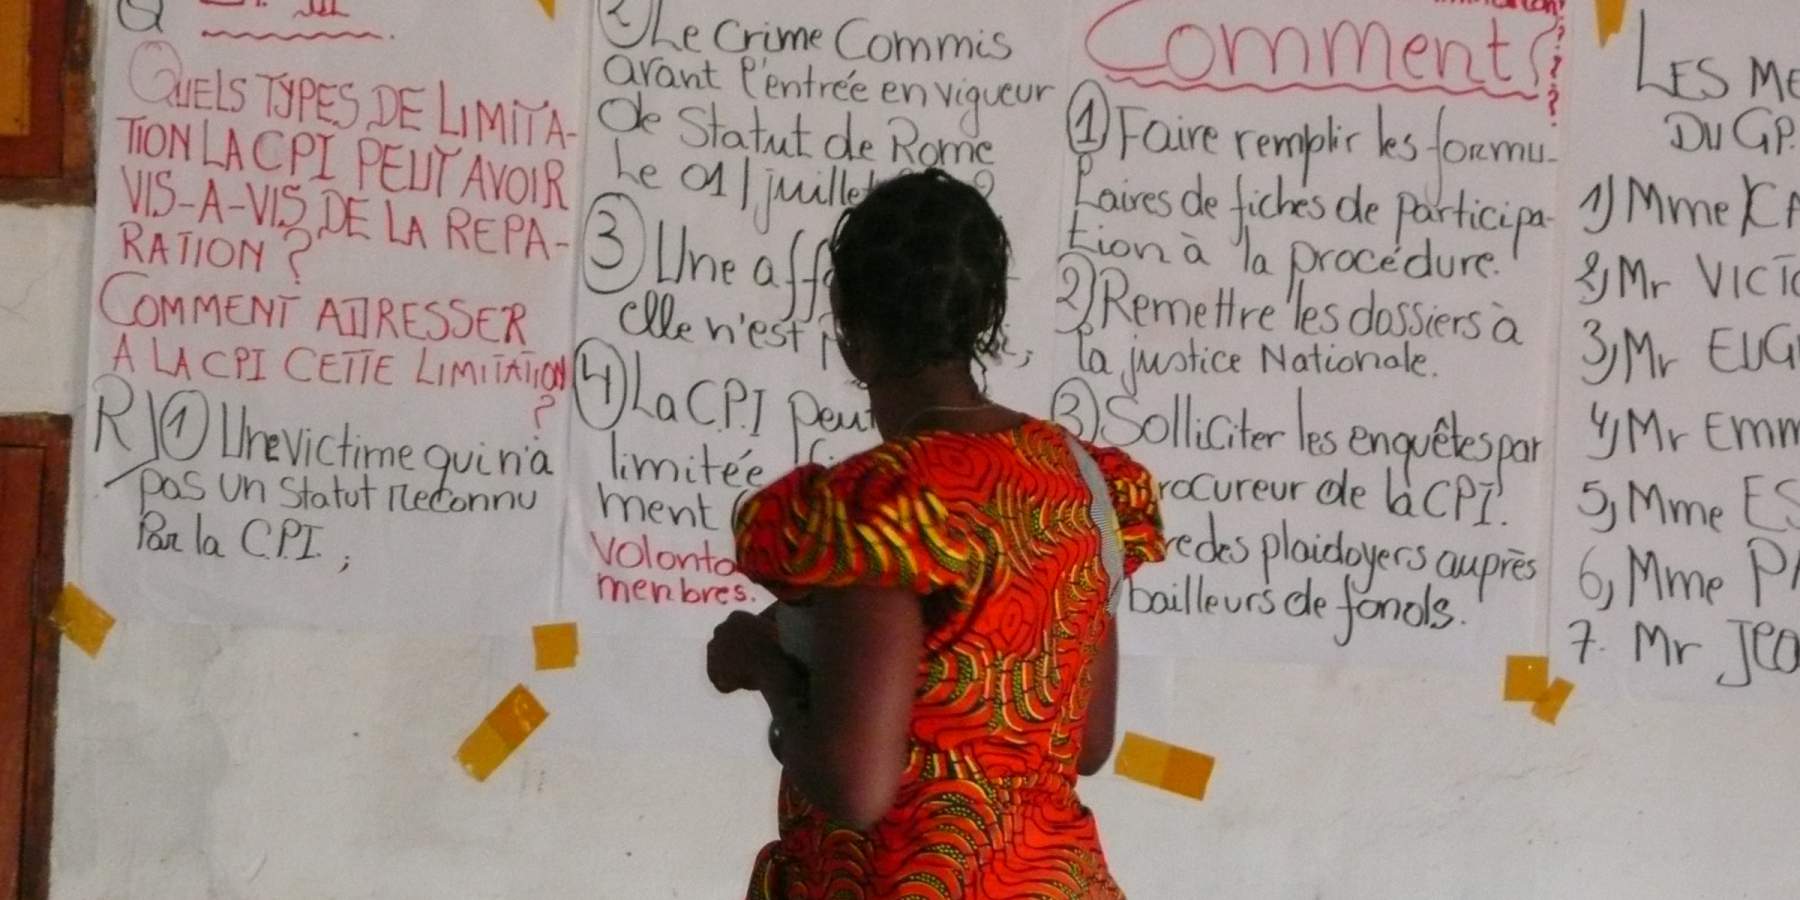 QUELS TYPES DE LIMITA-
TION LA CPI PEUT AVOIR
VIS-A-VIS DE LA REPA-
RATION ?
COMMENT ADRESSER
A LA CPI CETTE LIMITATION
?
R) ① Une victime qui n'a
pas un statut reconnu
Par la C.P.I. ;
② Le Crime Commis
avant l'entrée en vigueur
de Statut de Rome
Le 01 juillet
③ Une aff
elle n'est
④ La C.P.I peut
limitée
ment
Volonta
menbres.
Comment ?
① Faire remplir les formu-
Laires de fiches de participa-
tion à la procédure.
② Remettre les dossiers à
la justice Nationale.
③ Solliciter les enquêtes par
rocureur de la CPI.
re des plaidoyers auprès
bailleurs de fonds.
LES ME
DU GP.
1) Mme KA
2) Mr VICTO
3) Mr EUG
4) Mr Emm
5) Mme ES
6) Mme PA
7. Mr Jea